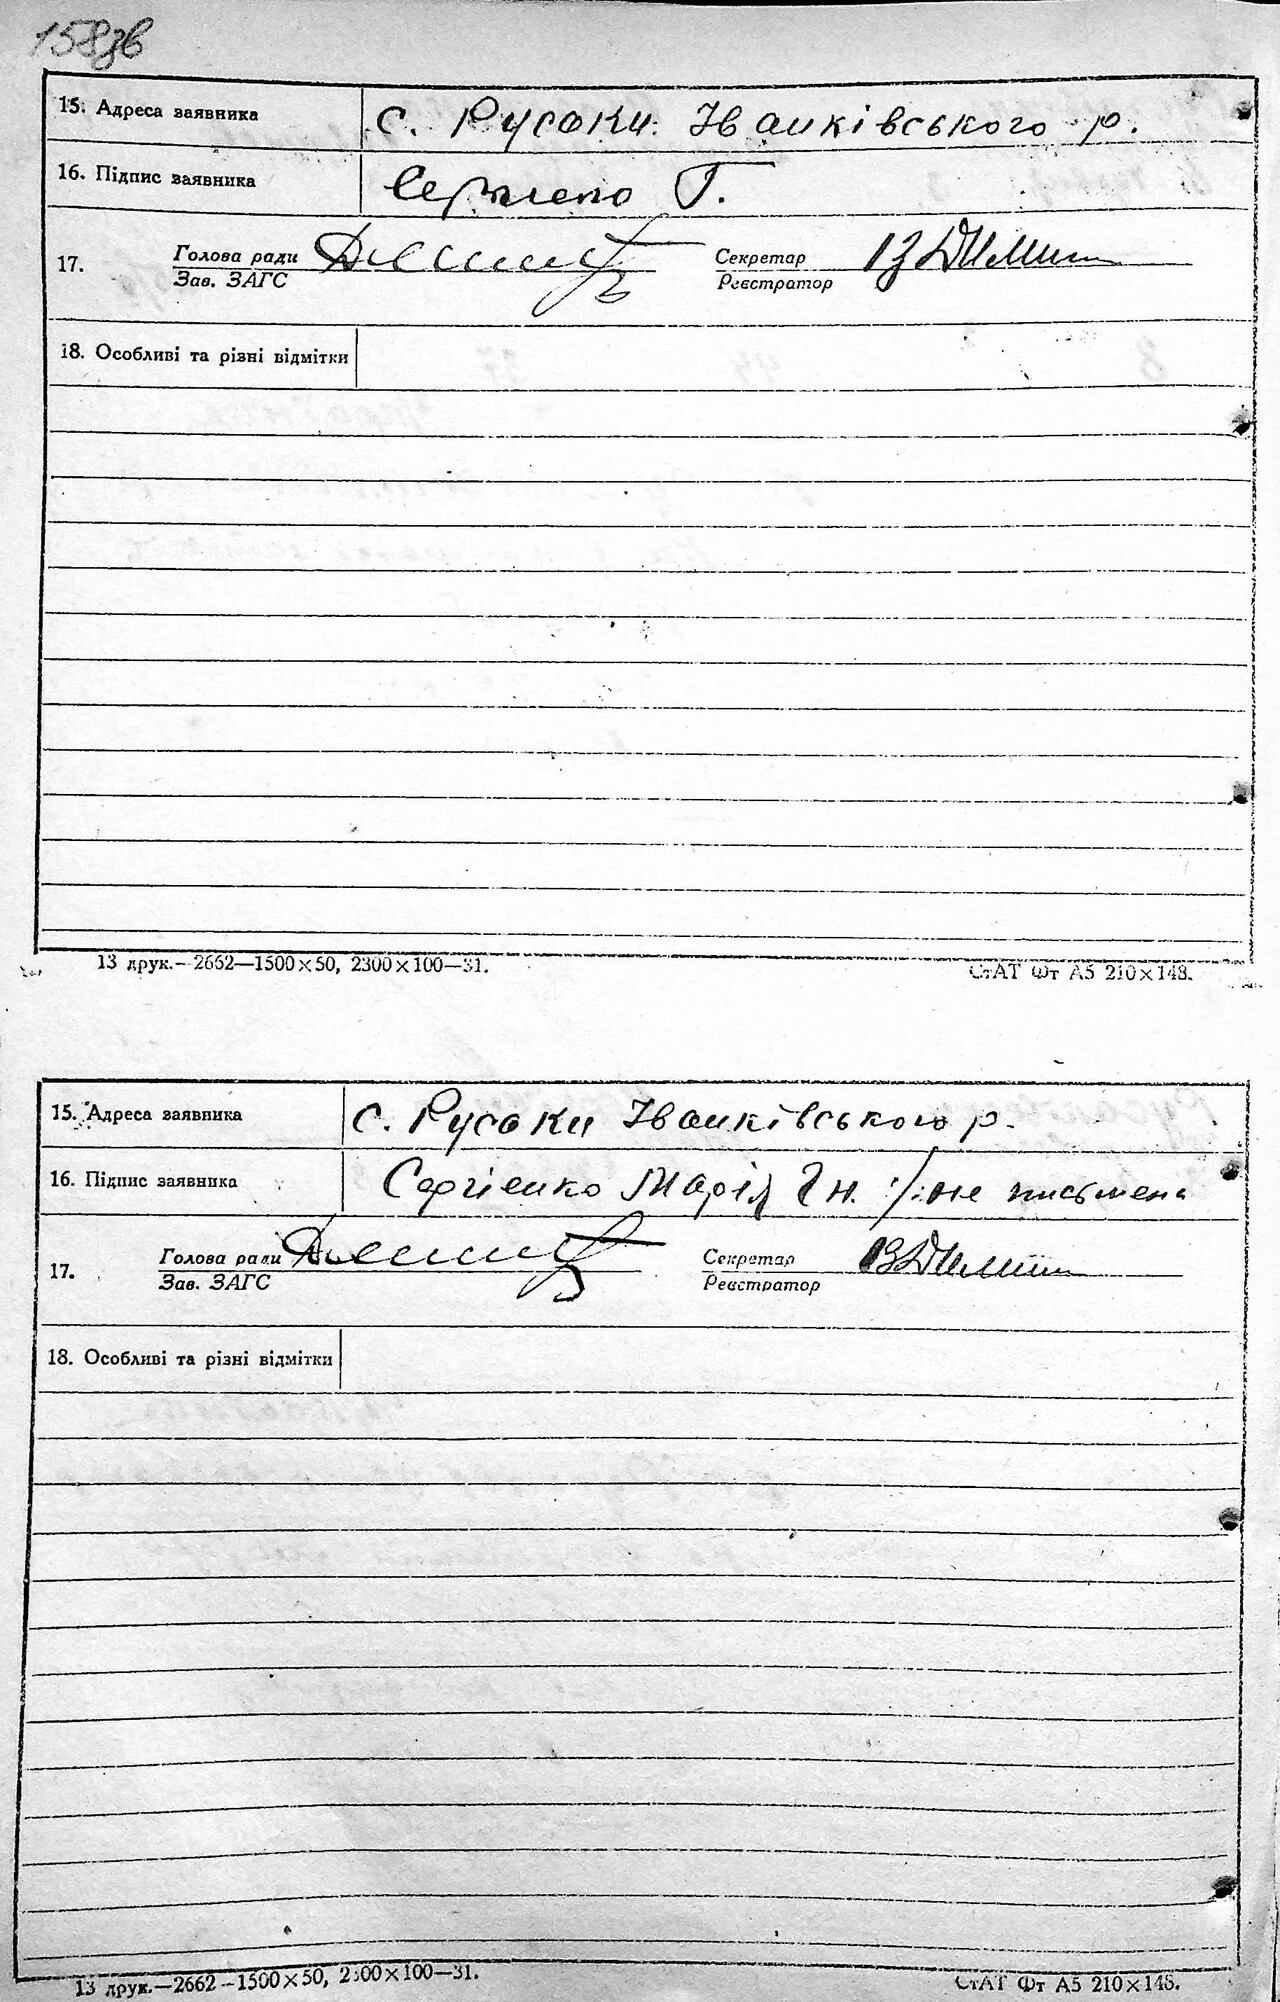 158зв
15. Адреса заявника с. Русаки Іванківського р.
16. Підпис заявника Г.
17. Голова ради Секретар
Зав. ЗАГС Реєстратор
18. Особливі та різні відмітки
13 друк.—2662—1500×50, 2300×100—31.
СтАТ Фт А5 210×148.
15. Адреса заявника с. Русаки Іванківського р.
16. Підпис заявника Сергієнко Марія Гн. /: не письмена
17. Голова ради Секретар
Зав. ЗАГС Реєстратор
18. Особливі та різні відмітки
13 друк.—2662—1500×50, 2300×100—31.
СтАТ Фт А5 210×148.